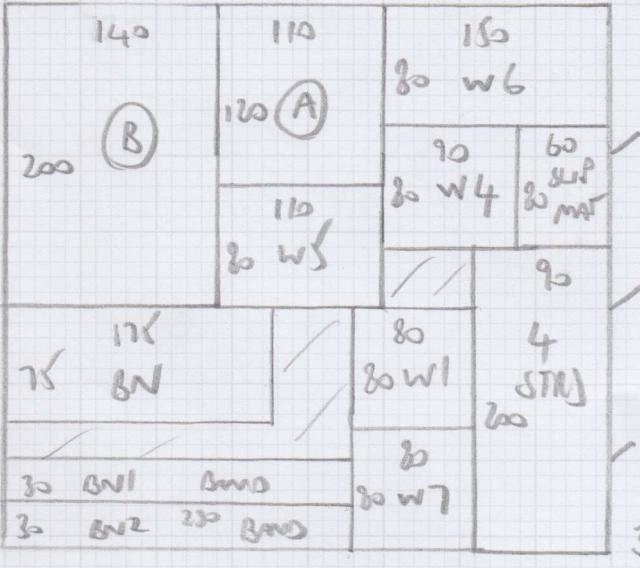 140
B
200
110
120 A
150
80 W6
90
80 W4
60
80
MAT
110
80 W5
90
4
200
175
75 BN
80
80 W1
80
80 W7
30 BN1 BAND
30 BN2 230 BAND